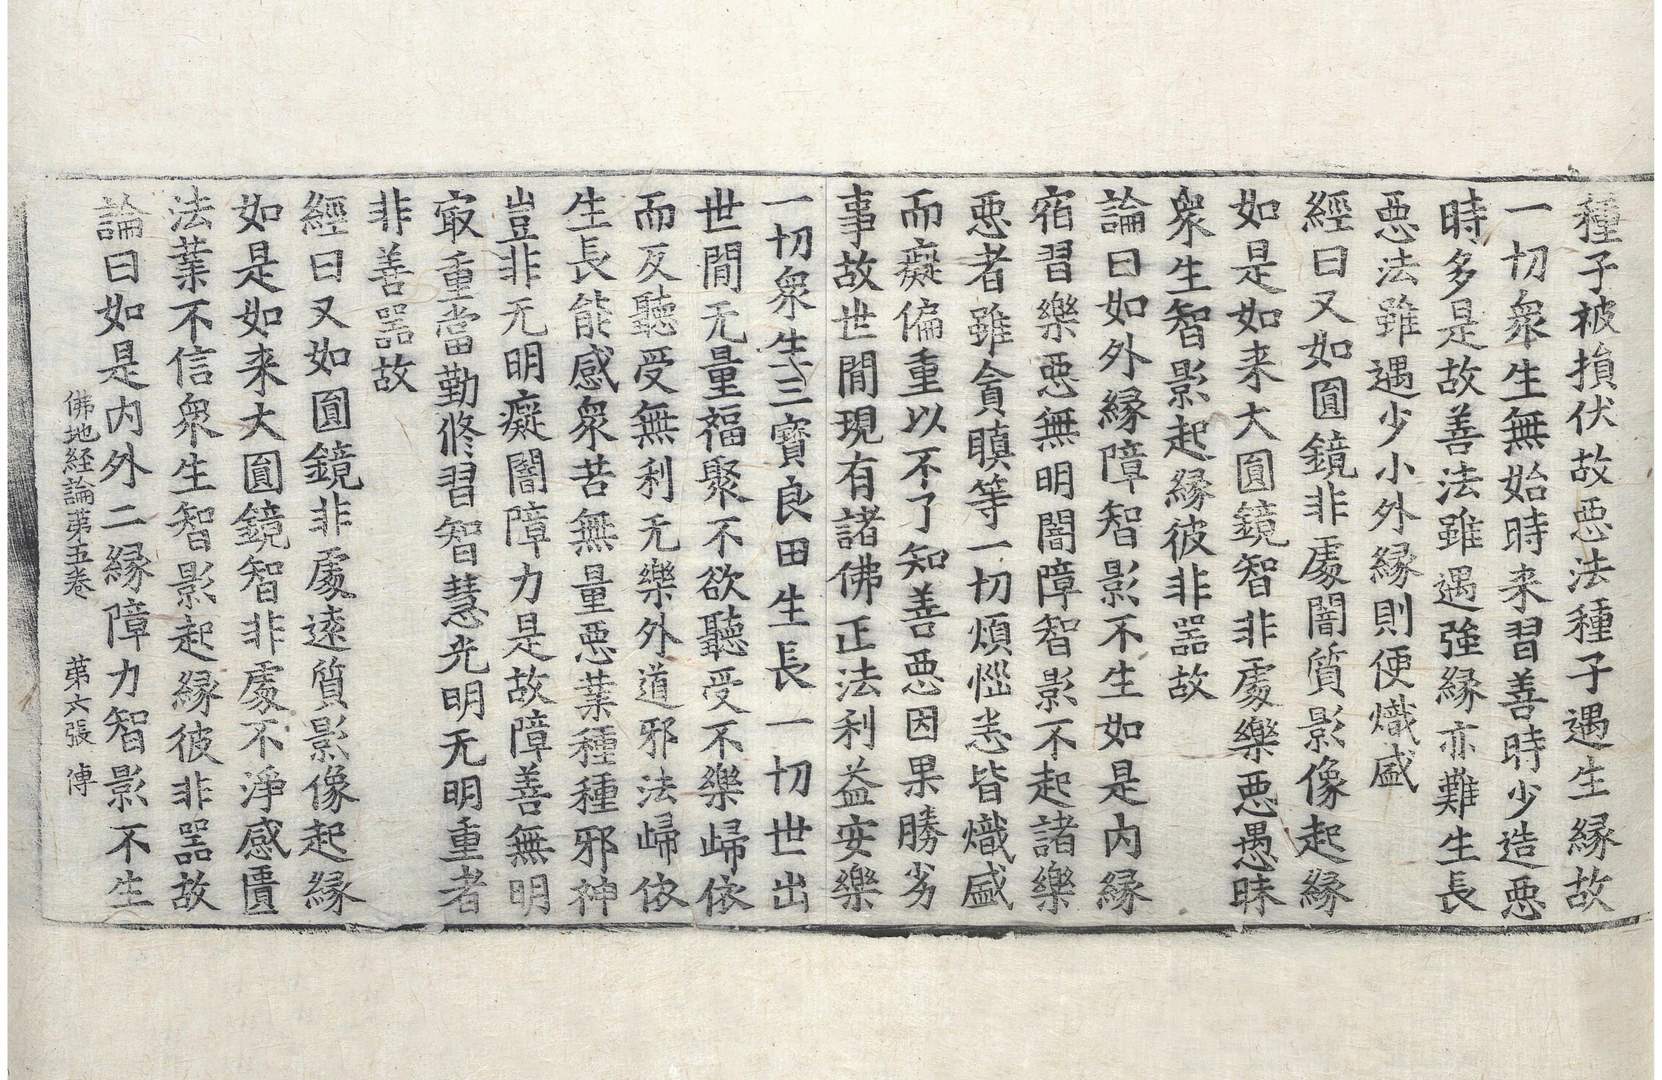 種子被損伏故惡法種子遇生縁故
一切衆生無始時来習善時少造惡
時多是故善法雖遇強縁亦難生長
惡法雖遇少小外縁則便熾盛
經曰又如圓鏡非處闇質影像起縁
如是如来大圓鏡智非處樂惡愚昧
衆生智影起縁彼非器故
論曰如外縁障智影不生如是内縁
宿習樂惡無明闇障智影不起諸樂
惡者雖貪瞋等一切煩惱恚皆熾盛
而癡偏重以不了知善惡因果勝劣
事故世間現有諸佛正法利益安樂
一切衆生三寳良田生長一切世出
世間无量福聚不欲聽受不樂歸依
而反聽受無利无樂外道邪法歸依
生長能感衆苦無量惡葉種種邪神
豈非无明癡闇障力是故障善無明
㝡重當勤修習智慧光明无明重者
非善器故
經曰又如圓鏡非處遠質影像起縁
如是如来大圓鏡智非處不淨感匱
法葉不信衆生智影起縁彼非器故
論曰如是内外二縁障力智影不生
佛地経論第五卷　第六張　傅